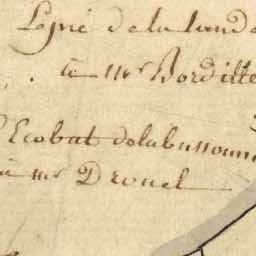 Le pré de la land
à mr Bordille
Ecobut delabussonn
à mr Drouel